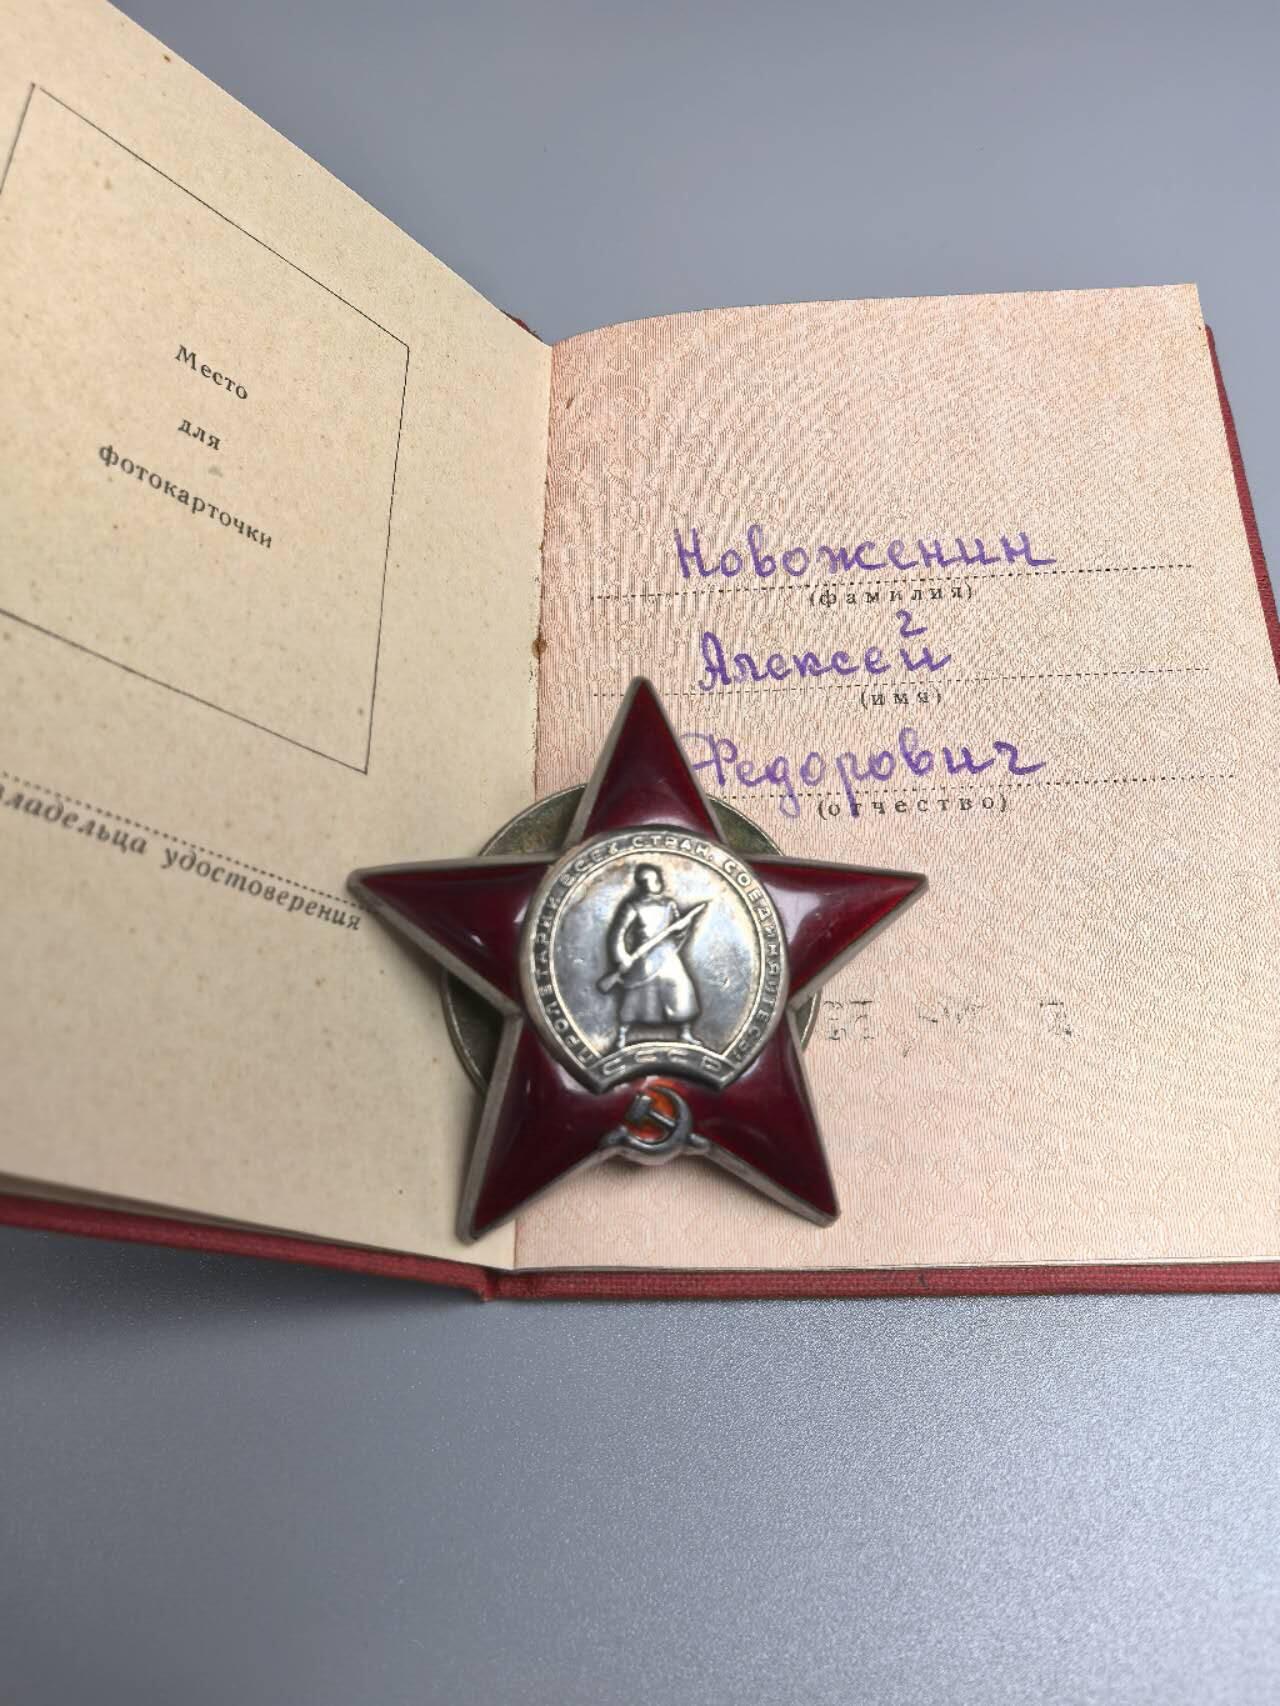 Место
для
фотокарточки
владельца удостоверения
Новоженин
(фамилия)
Алексей
(имя)
Федорович
(отчество)
ПРОЛЕТАРИИ ВСЕХ СТРАН, СОЕДИНЯЙТЕСЬ!
СССР